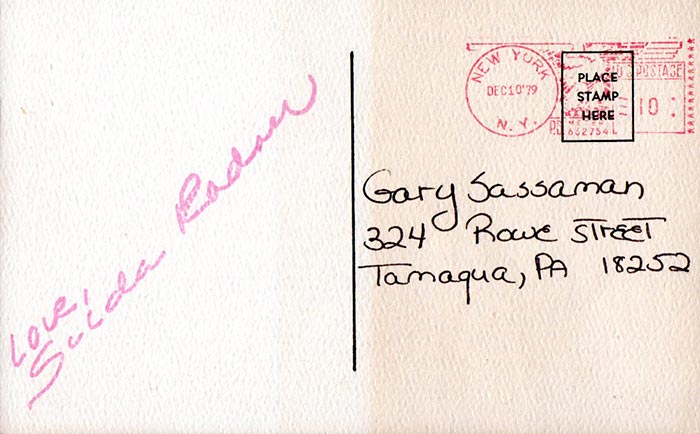 Love,
Gilda Radner
NEW YORK
DEC 10 '79
N.Y.
U.S. POSTAGE
10
P.B. METER
632754L
PLACE
STAMP
HERE
Gary Sassaman
324 Rowe Street
Tamaqua, PA 18252